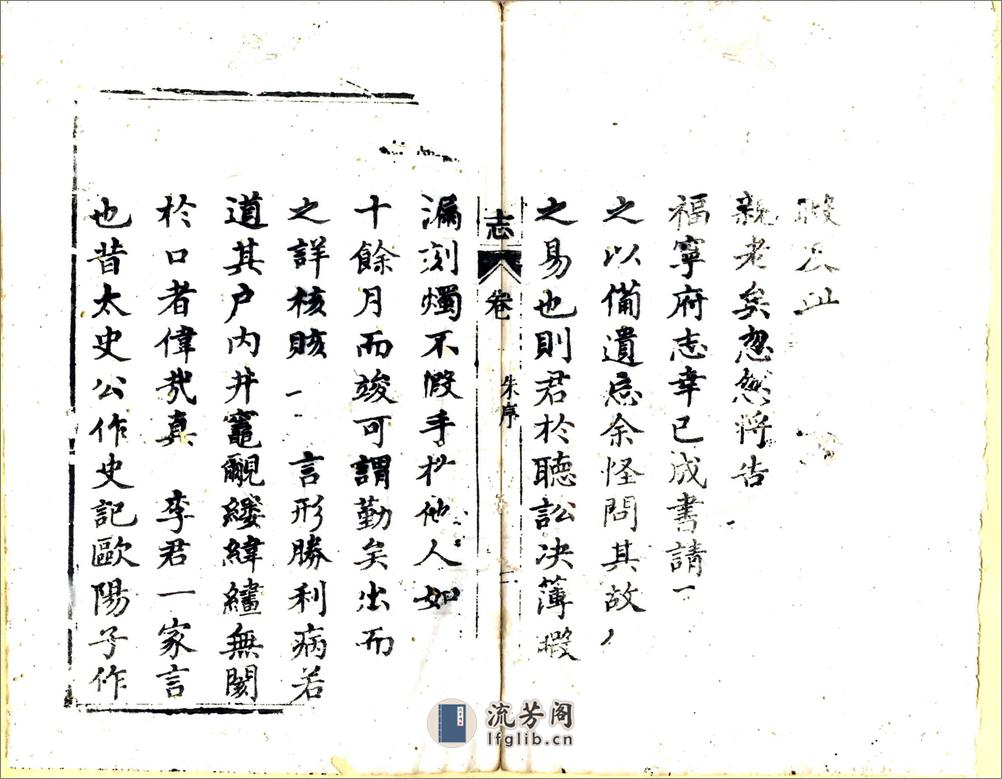 親老矣忽忽將告
福寧府志幸已成書請
之以備遺忘余怪問其故
之易也則君於聽訟決薄暇
志 卷 朱序 二
漏刻燭不假手於他人如
十餘月而竣可謂勤矣出而
之詳核賅 言形勝利病若
道其户内井竈覼縷緯繣無闕
於口者偉哉真 李君一家言
也昔太史公作史記歐陽子作
流芳阁
lfglib.cn